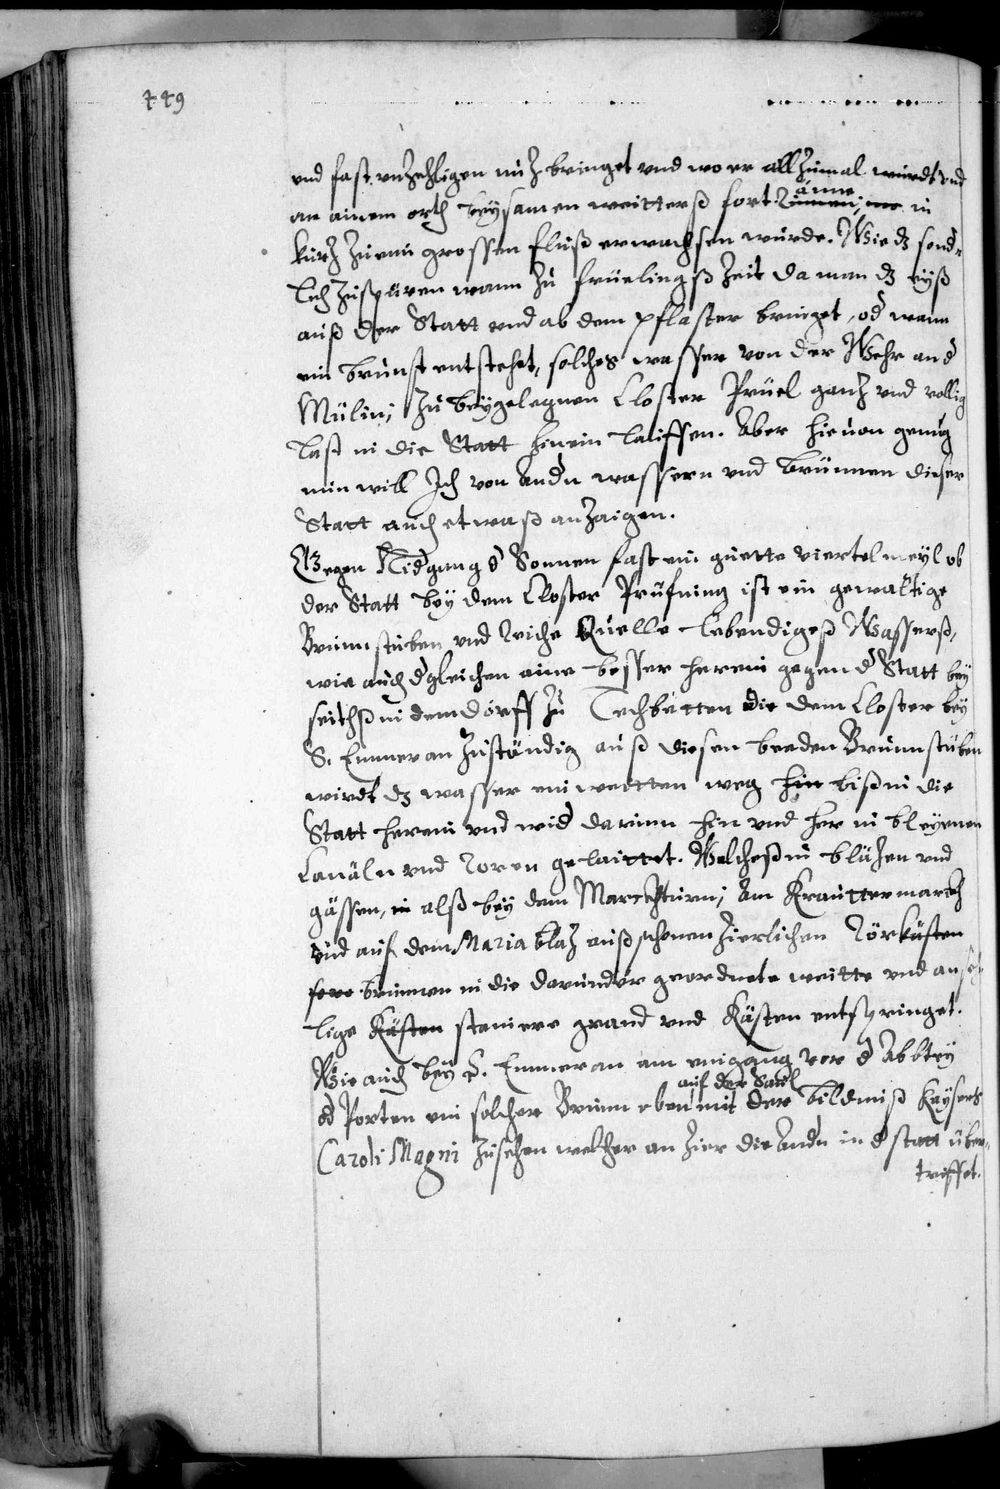 449
vnd fast vnzehligen nuz bringet vnd wo er allzumal wurdt vnd
an ainem orth beysamen weitterß fort in
kurz zu eim grossen fluß erwachsen wurde. Wie dz sond-
lich zu spüren wann zu früelingß zeit da man dz eyß
auß der Statt vnd ab dem pflaster bringet, od wann
ein brunst entstehet, solches wasser von der Wehr and
Mülin, zu beygelegnen Closter Prüel ganz vnd völlig
last in die Statt hinein lauffen. Aber hieuon genug
nun will Ich von Andn wassern vnd Brünnen dieser
Statt auch etwaß anzaigen.
Gegen Nidgang d Sonnen fast ein guette viertel meyl ob
der Statt bey dem Closter Prüfning ist ein gewaltige
Brunnstuben vnd reiche Quelle lebendigeß Wasserß,
wie auch dgleichen aine besser herein gegen d Statt bey
seithß in dem dorff zu Dechbetten die dem Closter bey
S. Emmeran zuständig auß diesen beeden Brunnstuben
wirdt dz wasser ein weitten weg hin biß in die
Statt herein vnd wid darinn hin vnd her in bleyenen
Canäln vnd Roren gelaittet. Welcheß in bläzen vnd
gässen, alß bey dem Marcktthurn, Am Krauttermarckh
vnd auf dem Maria blaz auß schenen zierlichen Rörkästen
brinnen in die darunder geordnete weitte vnd anseh
lige stainere grand vnd Kästen entspringet.
Wie auch bey S. Emmeran am eingang vor d Abbtey
auf der Saul
d Porten ein solcher Brunn eben mit der bildniß Kaysers
Caroli Magni zusehen welcher an zier die Andn in d statt über-
trifft.